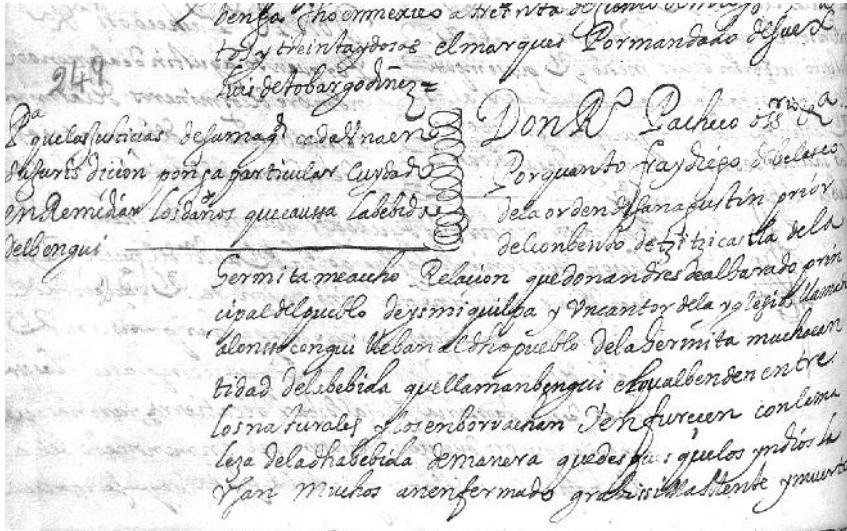 benga fho en mexico a treinta de junio de mill y seis
tos y treinta y dos as el marques Por mandado de su ex
luis de tobar godinez =
249
Pa que las justicias de su magd cada Una en
su jurisdicion ponga particular cuydado
en Remediar los daños que caussa la bebida
del bengui
Don R Pacheco ossrio &a
Por quanto fray diego de belasco
de la orden de san agustin prior
del conbento de tzitzicastla de la
hermita me a hecho Relacion que don andres de albarado prin
cipal del pueblo de ysmiquilpa y Un cantor de la yglesia llamado
alonsso conqui lleban al dho pueblo de la hermita mucha can
tidad de la bebida que llaman bengui el qual benden entre
los naturales y los enborrachan Y enfurecen con la ma
leza de la dha bebida de manera que despues que los yndios la
Usan muchos an enfermado grabissimamente y muerto